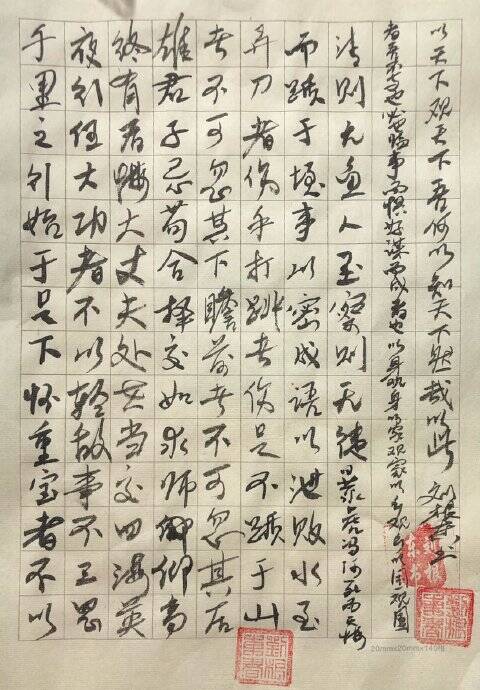 千里之行始于足下怀重宝者不以
夜行任大功者不以轻敌事不三思
终有后悔大丈夫处世当交四海英
雄君子忌苟合择交如求师仰高
者不可忽其下瞻前者不可忽其后
弄刀者伤手打跳者伤足不踬于山
而踬于垤事以密成语以泄败水至
清则无鱼人至察则无徒 暴虎冯河死而无悔
者吾不与也必也临事而惧好谋而成者也以身观身以家观家以乡观乡以国观国
以天下观天下吾何以知天下然哉以此 刘
20mm×20mm×140格